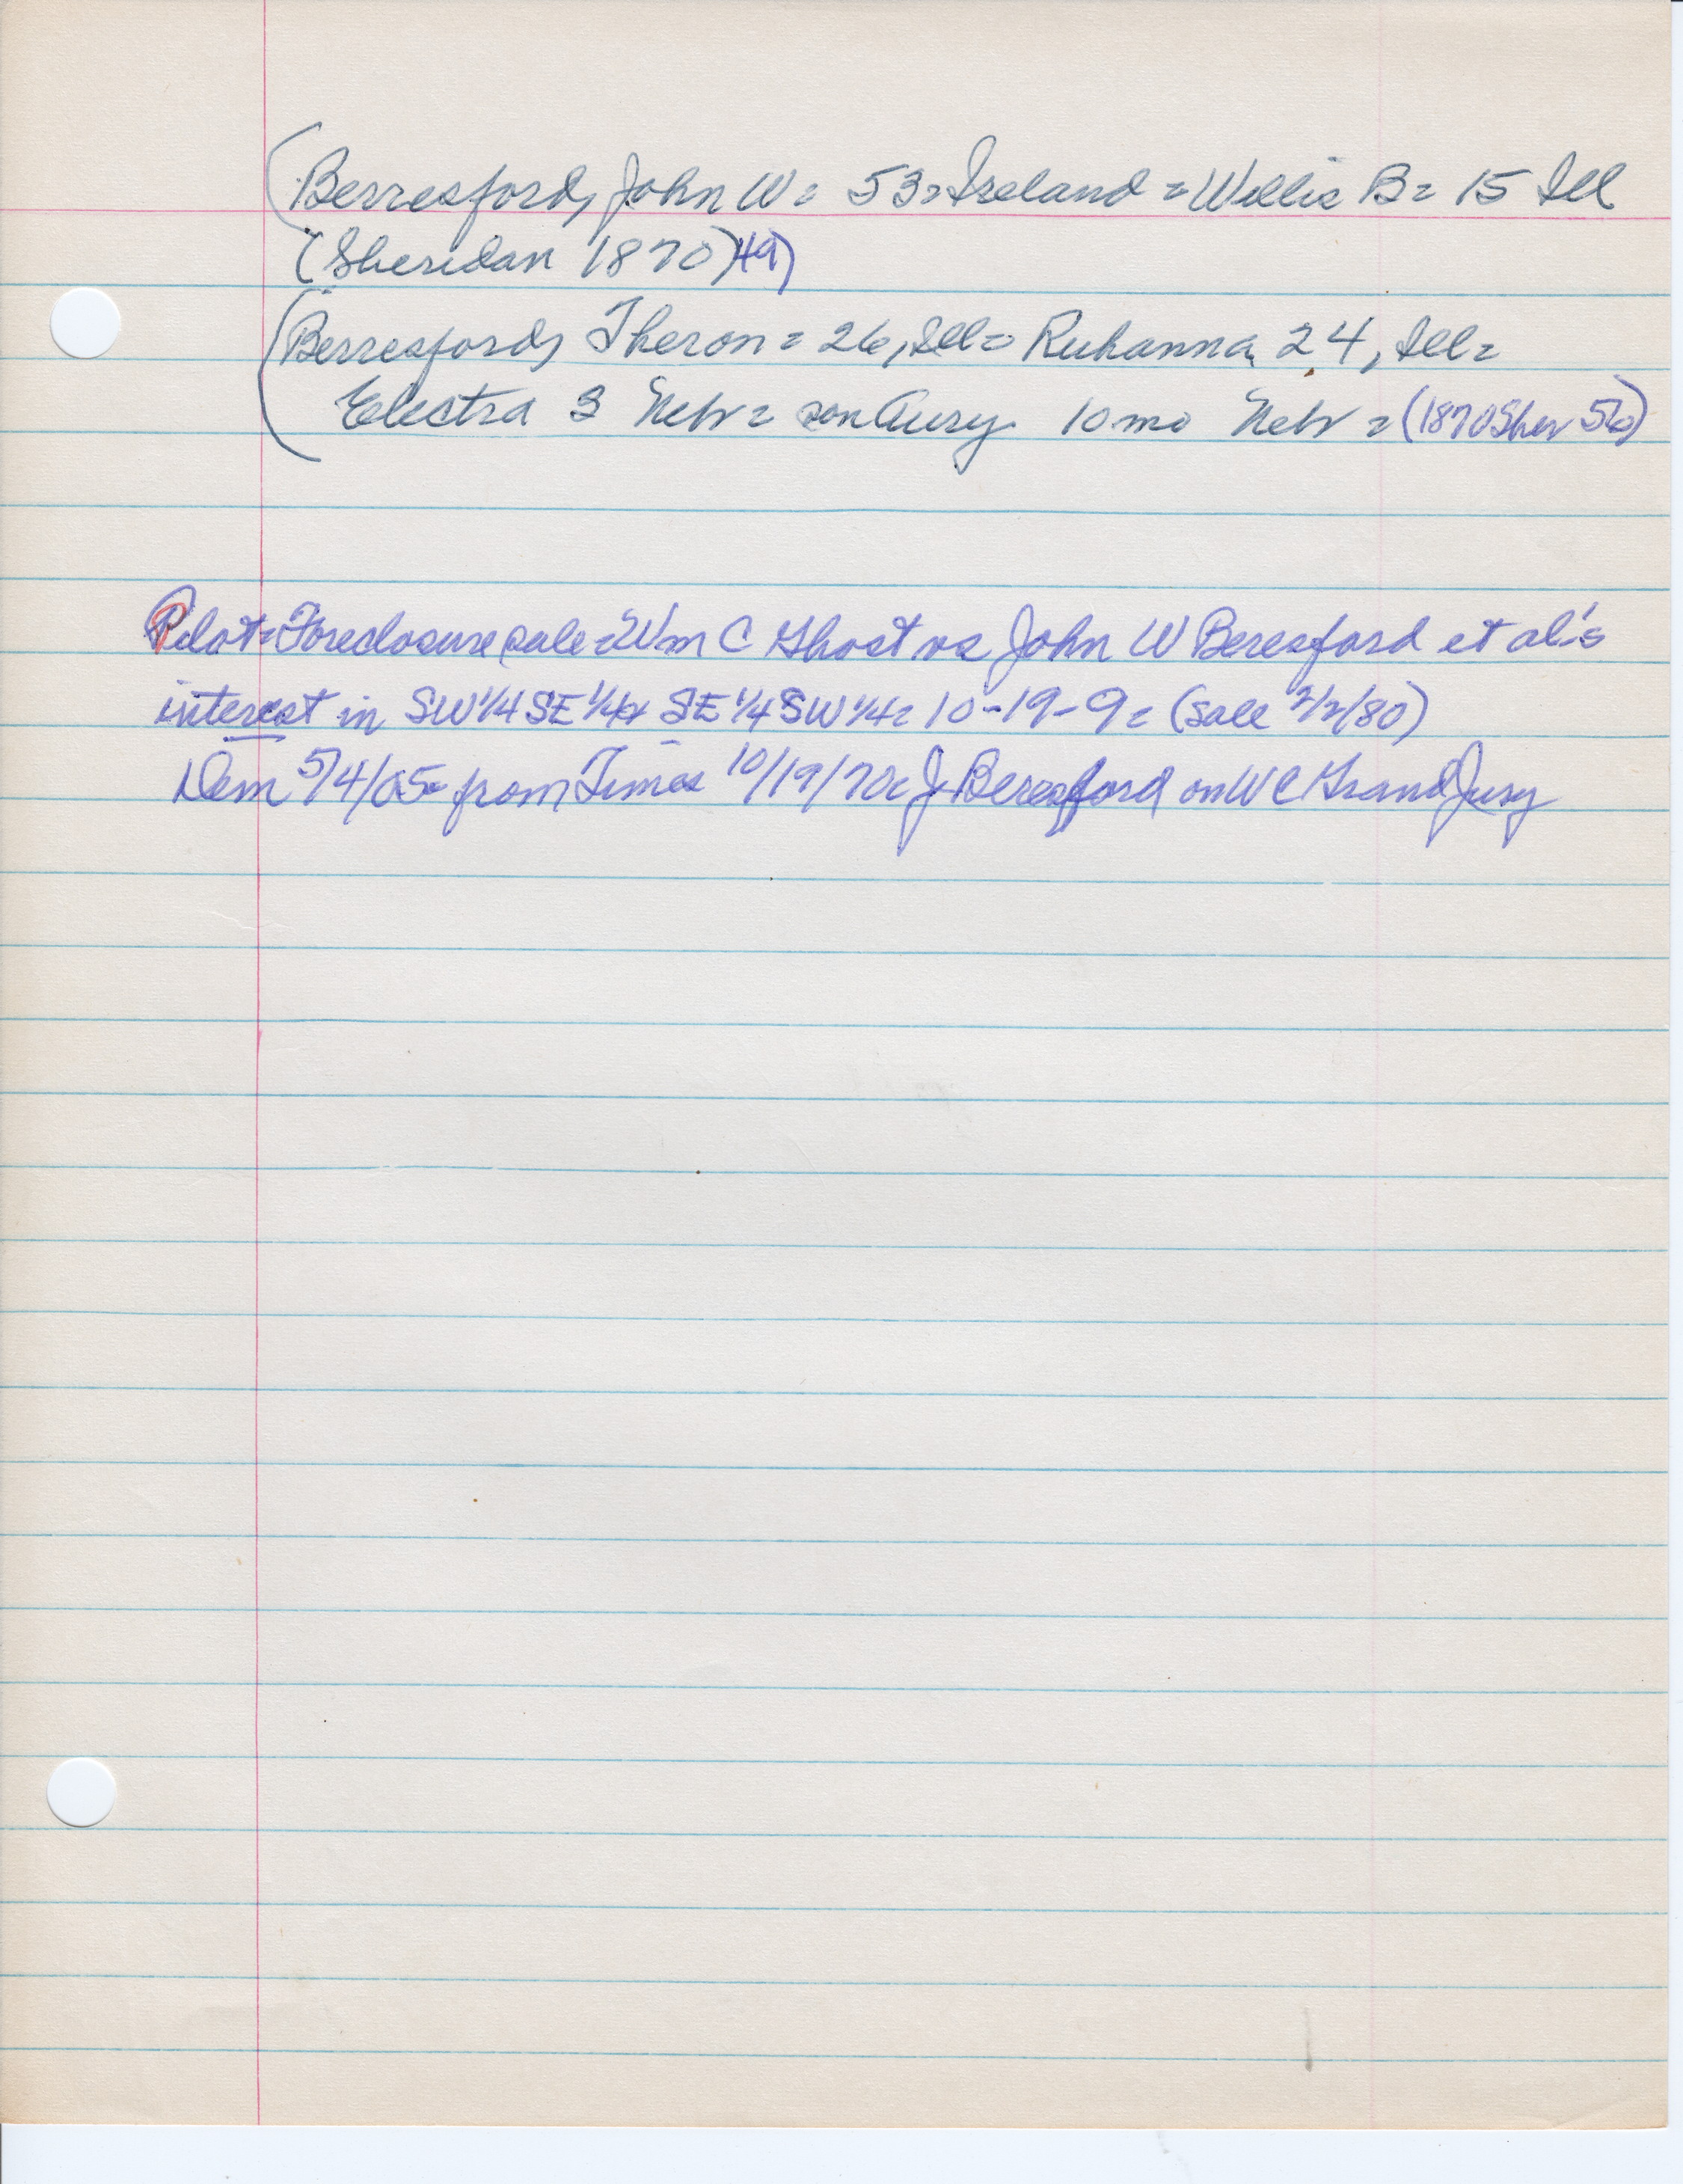 (Berresford, John W = 53 = Ireland = Willis B = 15 Ill
(Sheridan 1870) 49)
(Berresford, Theron = 26, Ill = Ruhanna 24, Ill =
Electra 3 Nebr = son Aury 10 mo Nebr = (1870 Sher 56)
Pilot = Foreclosure sale = Wm C Ghost vs John W Beresford et al's
interest in SW 1/4 SE 1/4 & SE 1/4 SW 1/4 = 10-19-9 = (sale 2/2/80)
Dem 5/4/05 = from Times 10/19/70 = J Beresford on W C Grand Jury